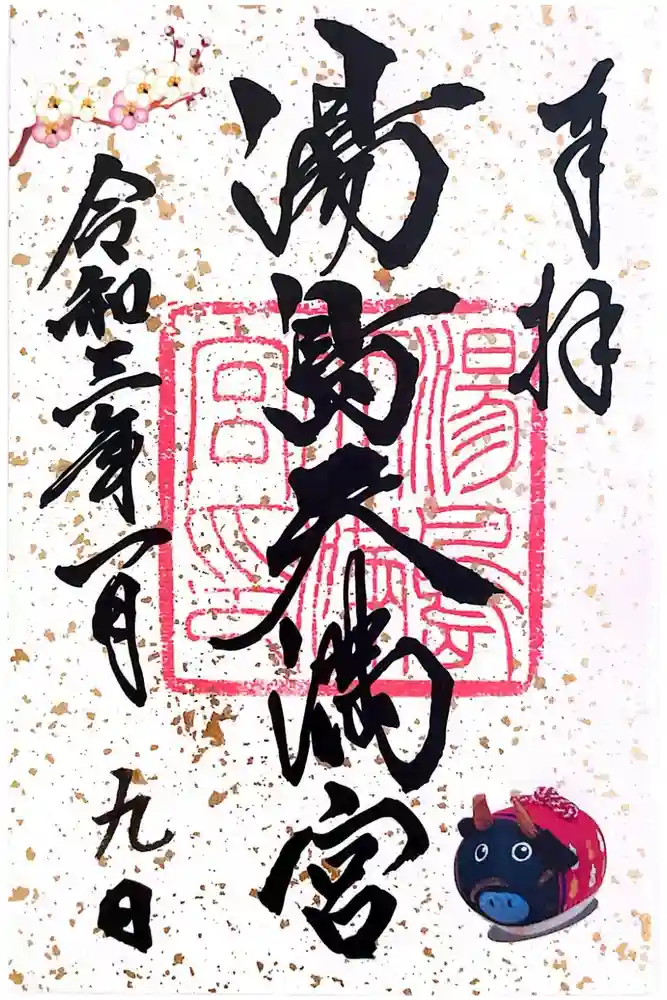 奉拝
湯島天満宮
湯島天満宮印
令和三年一月九日